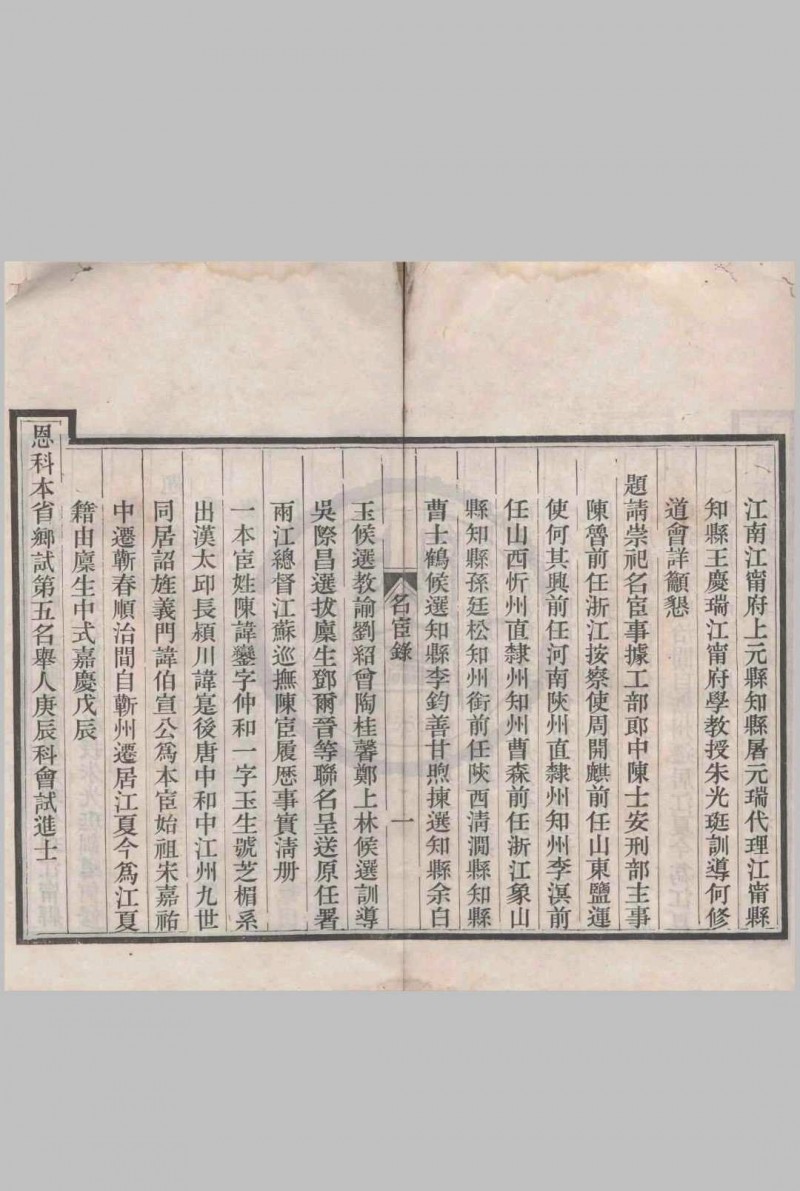 江南江甯府上元縣知縣屠元瑞代理江甯縣
知縣王慶瑞江甯府學教授朱光珽訓導何修
道會詳籲懇
題請崇祀名宦事據工部郎中陳士安刑部主事
陳魯前任浙江按察使周開麒前任山東鹽運
使何其興前任河南陝州直隸州知州李溟前
任山西忻州直隸州知州曹森前任浙江象山
縣知縣孫廷松知州銜前任陝西淸澗縣知縣
曹士鶴候選知縣李鈞善甘煦揀選知縣余白
名宦錄
一
玉候選教諭劉紹曾陶桂馨鄭上林候選訓導
吳際昌選拔廩生鄧爾晉等聯名呈送原任署
兩江總督江蘇巡撫陳宦履歷事實淸册
一本宦姓陳諱鑾字仲和一字玉生號芝楣系
出漢太邱長潁川諱寔後唐中和中江州九世
同居詔旌義門諱伯宣公爲本宦始祖宋嘉祐
中遷蘄春順治間自蘄州遷居江夏今爲江夏
籍由廩生中式嘉慶戊辰
恩科本省鄉試第五名舉人庚辰科會試進士